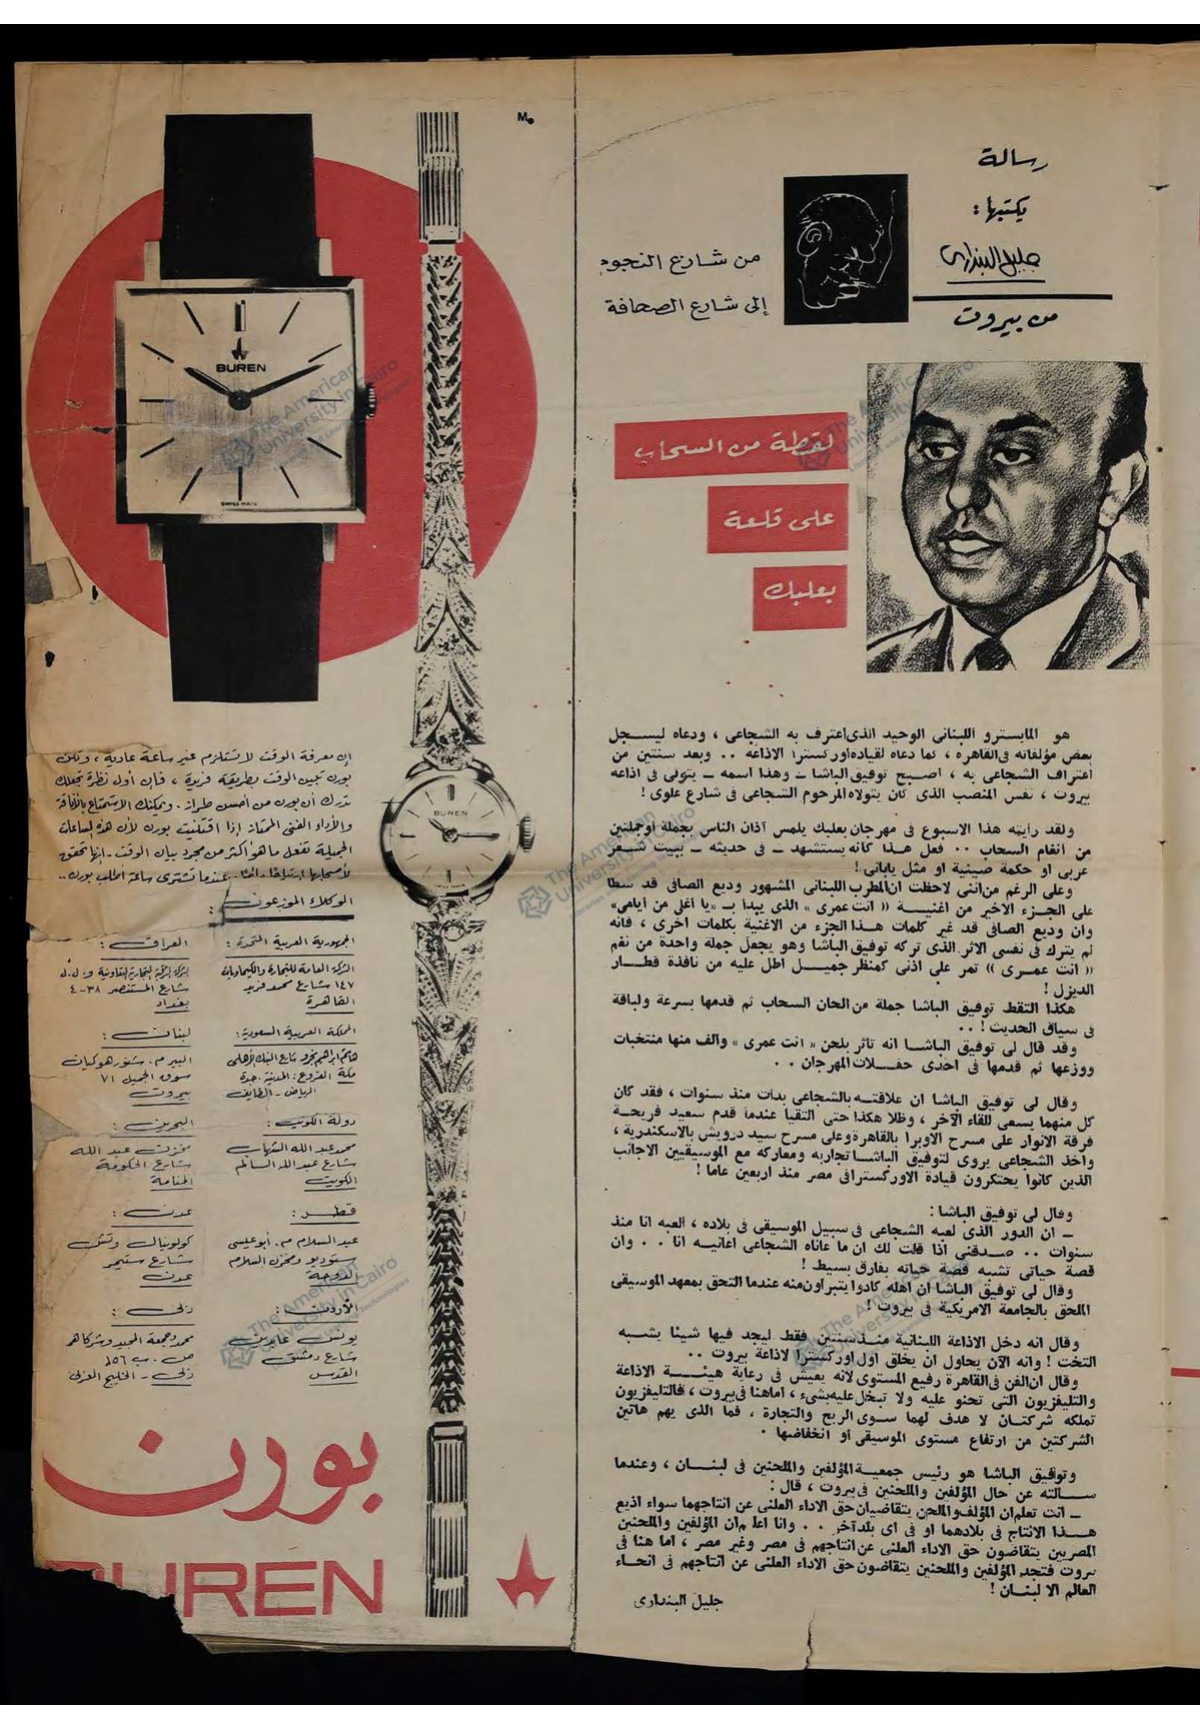 رسالة
يكتبها :
جليل البنداري
من بيروت
من شارع النجوم
إلى شارع الصحافة
لقطة من السحاب
على قلعة
بعلبك
هو المايسترو اللبناني الوحيد الذى اعترف به الشجاعى ، ودعاه ليسـجل
بعض مؤلفاته فى القاهرة ، كما دعاه لقيادة اوركسترا الاذاعة .. وبعد سنتين من
اعتراف الشجاعى به ، اصـبح توفيق الباشا ـ وهذا اسمه ـ يتولى فى اذاعة
بيروت ، نفس المنصب الذى كان يتولاه المرحوم الشجاعى فى شارع علوى !
ولقد رأيته هذا الاسبوع فى مهرجان بعلبك يلمس آذان الناس بجملة أوجملتين
من انغام السحاب .. فعل هـذا كانه يستشهد ـ فى حديثه ـ ببيت شـعر
عربى او حكمة صينية او مثل يابانى !
وعلى الرغم من اننى لاحظت ان المطرب اللبنانى المشهور وديع الصافى قد سطا
على الجـزء الاخير من اغنيـة « انت عمرى » الذى يبدا بـ «يا أغلى من أيامى»
وان وديع الصافى قد غير كلمات هـذا الجزء من الاغنية بكلمات اخرى ، فانه
لم يترك فى نفسى الاثر الذى تركه توفيق الباشا وهو يجعل جملة واحدة من نغم
« انت عمـرى » تمر على اذنى كمنظر جميـل اطل عليه من نافذة قطـار
الديزل !
هكذا التقط توفيق الباشا جملة من الحان السحاب ثم قدمها بسرعة ولباقة
فى سياق الحديث ! ..
وقد قال لى توفيق الباشـا انه تاثر بلحن « انت عمرى » والف منها منتخبات
ووزعها ثم قدمها فى احدى حفـلات المهرجان . .
وقال لى توفيق الباشا ان علاقتـه بالشجاعى بدات منذ سنوات ، فقد كان
كل منهما يسعى للقاء الآخر ، وظلا هكذا حتى التقيا عندما قدم سعيد فريحـة
فرقة الانوار على مسرح الاوبرا بالقاهرة وعلى مسرح سيد درويش بالاسكندرية ،
واخذ الشجاعى يروى لتوفيق الباشـا تجاربه ومعاركه مع الموسيقيين الاجانب
الذين كانوا يحتكرون قيادة الاوركسترا فى مصر منذ اربعين عاما !
وقال لى توفيق الباشا :
ـ ان الدور الذى لعبه الشجاعى فى سبيل الموسيقى فى بلاده ، العبه انا منذ
سنوات .. صـدقنى اذا قلت لك ان ما عاناه الشجاعى اعانيـه انا . . وان
قصة حياتى تشبه قصة حياته بفارق بسيط !
وقال لى توفيق الباشا ان اهله كادوا يتبراون منه عندما التحق بمعهد الموسيقى
الملحق بالجامعة الامريكية فى بيروت !
وقال انه دخل الاذاعة اللبنانية منـذ سنتين فقط ليجد فيها شيئا يشـبه
التخت ! وانه الآن يحاول ان يخلق اول اوركسترا لاذاعة بيروت ..
وقال ان الفن فى القاهرة رفيع المستوى لانه يعيش فى رعاية هيئـة الاذاعة
والتليفزيون التى تحنو عليه ولا تبخل عليه بشىء ، اما هنا فى بيروت ، فالتليفزيون
تملكه شركتـان لا هدف لهما سـوى الربح والتجارة ، فما الذى يهم هاتين
الشركتين من ارتفاع مستوى الموسيقى أو انخفاضها .
وتوفيق الباشا هو رئيس جمعيـة المؤلفين والملحنين فى لبنـان ، وعندما
سـالته عن حال المؤلفين والملحنين فى بيروت ، قال :
ـ انت تعلم ان المؤلف والملحن يتقاضيان حق الاداء العلنى عن انتاجهما سواء اذيع
هـذا الانتاج فى بلادهما او فى اى بلد آخر . . وانا اعلم ان المؤلفين والملحنين
المصريين يتقاضون حق الاداء العلنى عن انتاجهم فى مصر وغير مصر ، اما هنا فى
بيروت فتجد المؤلفين والملحنين يتقاضون حق الاداء العلنى عن انتاجهم فى انحـاء
العالم الا لبنـان !
جليل البندارى
BUREN
SWISS MADE
BUREN
إن معرفة الوقت لا تستلزم غير ساعة عادية ، ولكن
بورن تبين الوقت بطريقة فريدة ، فإن أول نظرة تجعلك
تدرك أن بورن من أحسن طراز . ويمكنك الاستمتاع بالأناقة
والأداء الفنى الممتاز إذا اقتنيت بورن لأن هذه الساعات
الجميلة تفعل ما هو أكثر من مجرد بيان الوقت ـ إنها تحقق
لأصحابها عندما تشترى ساعة اطلب بورن ..
الوكلاء الموزعون :
الجمهورية العربية المتحدة :
الشركة العامة للتجارة والكيماويات
١٤٧ شارع محمد فريد
القاهرة
المملكة العربية السعودية :
مكة الفروع : المدينة . جدة
الرياض ـ الطائف
دولة الكويت :
محمد عبد الله
شارع عبد الله السالم
الكويت
قطر :
عبد السلام م. أبو عيسى
ستوديو ومخزن السلام
الدوحة
الأردن :
يونس عابدين
شارع دمشق
القدس
العراق :
شارع المستنصر ٣٨-٤
بغداد
لبنان :
سوق الجميل ٧١
بيروت
البحرين :
عبد الله
شارع الحكومة
المنامة
عدن :
كولونيال
شارع ستيمر
عدن
دبى :
محمد وجمعة الماجد وشركاهم
ص . ب ١٥٦
دبى ـ الخليج العربى
بورن
BUREN
The American University in Cairo